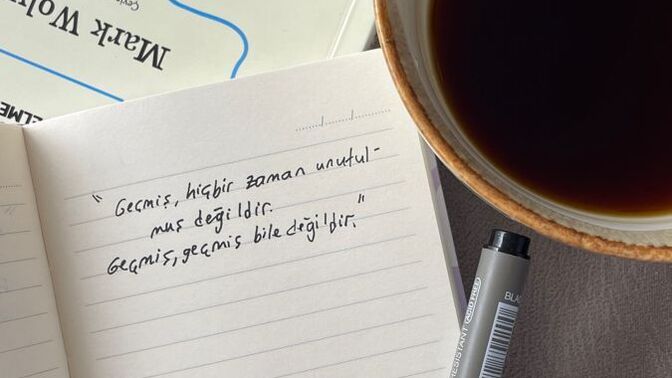 Mark Wol
ELME
" Geçmiş, hiçbir zaman unutul-
muş değildir.
Geçmiş, geçmiş bile değildir. "
BLA
RESISTANT (ACID FREE)